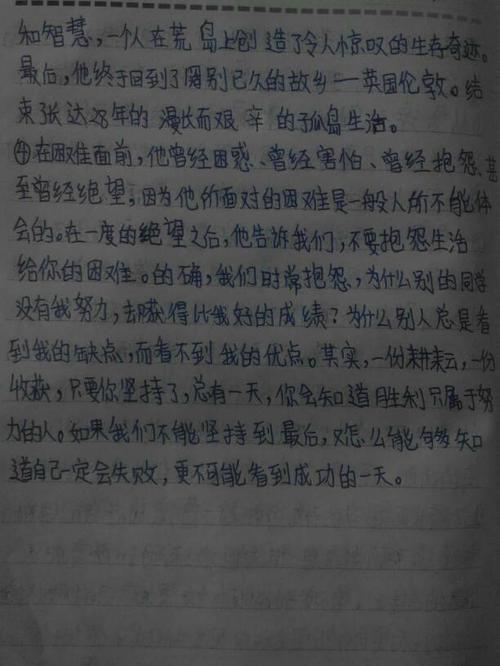 和智慧,一个人在荒岛上创造了令人惊叹的生存奇迹。
最后,他终于回到了阔别已久的故乡——英国伦敦。结
束了长达28年的漫长而艰辛的孤岛生活。
④在困难面前,他曾经困惑、曾经害怕、曾经抱怨、甚
至曾经绝望,因为他所面对的困难是一般人所不能体
会的。在一度的绝望之后,他告诉我们,不要抱怨生活
给你的困难。的确,我们时常抱怨,为什么别的同学
没有我努力,却获得比我好的成绩?为什么别人总是看
到我的缺点,而看不到我的优点。其实,一份耕耘,一份
收获,只要你坚持了,总有一天,你会知道胜利只属于努
力的人。如果我们不能坚持到最后,又怎么能够知
道自己一定会失败,更不可能看到成功的一天。